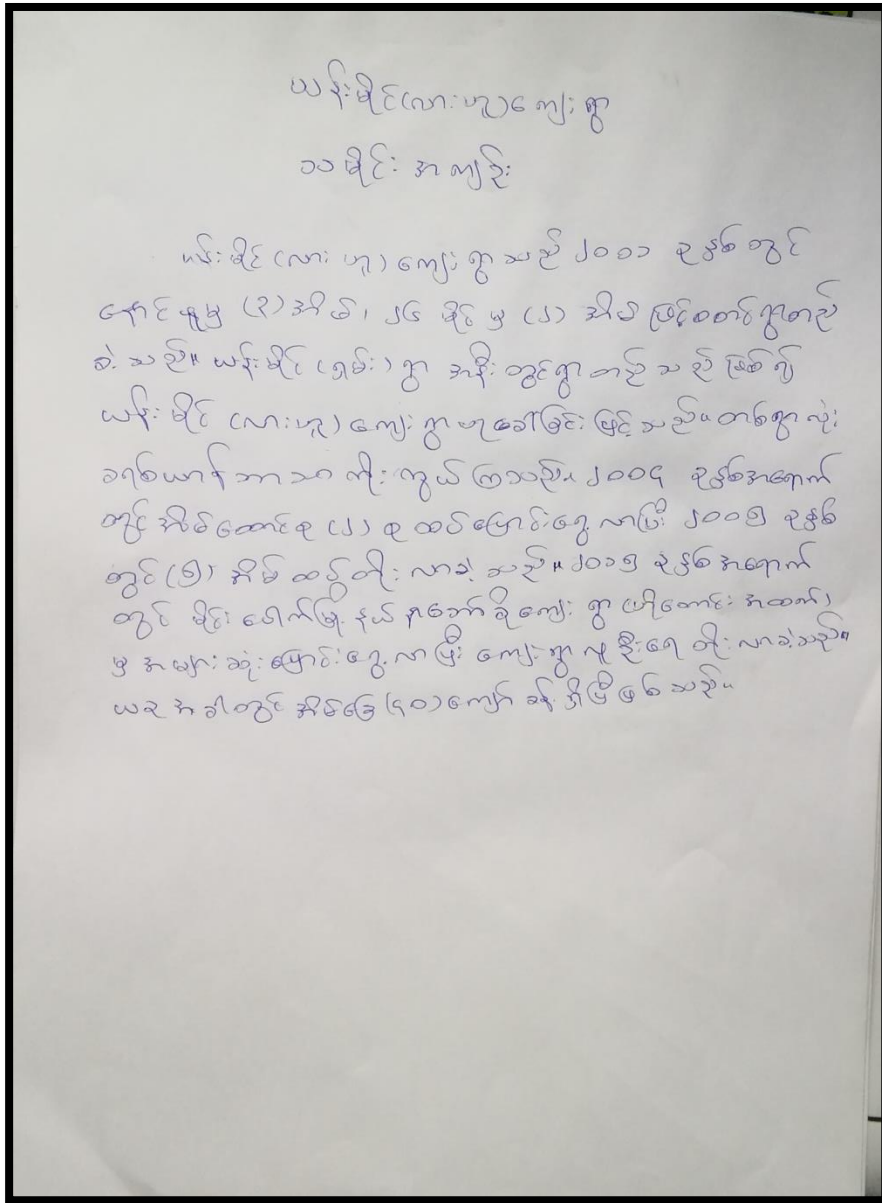 ယန်းမိုင်(လားဟူ)ကျေးရွာ
သမိုင်းအကျဉ်း
ယန်းမိုင်(လားဟူ)ကျေးရွာသည် ၂၀၀၁ ခုနှစ်တွင်
နောင်ဖူမှ (၃)အိမ်၊ ၂၄ မိုင်မှ (၂) အိမ် ဖြင့်စတင်ရွာတည်
ခဲ့သည်။ ယန်းမိုင်(ရှမ်း)ရွာ အနီးတွင်ရွာတည်သည်ဖြစ်၍
ယန်းမိုင် (လားဟူ)ကျေးရွာဟုခေါ်ခြင်းဖြင့်သည်။ တစ်ရွာလုံး
ခရစ်ယာန်ဘာသာကိုးကွယ်ကြသည်။ ၂၀၀၄ ခုနှစ်အရောက်
တွင်အိမ်ထောင်စု (၂) စုထပ်ပြောင်းရွှေ့လာပြီး ၂၀၀၅ ခုနှစ်
တွင် (၅) အိမ်ထပ်တိုးလာခဲ့သည်။ ၂၀၁၅ ခုနှစ်အရောက်
တွင် မိုင်းပေါက်မြို့နယ် ကျေးရွာ (ဟိုတောင်းအထက်)
မှ အများဆုံးပြောင်းရွှေ့လာပြီး ကျေးရွာလူဦးရေတိုးလာခဲ့သည်။
ယခုအခါတွင် အိမ်ခြေ (၄၀)ကျော်ခန့်ရှိပြီဖြစ်သည်။